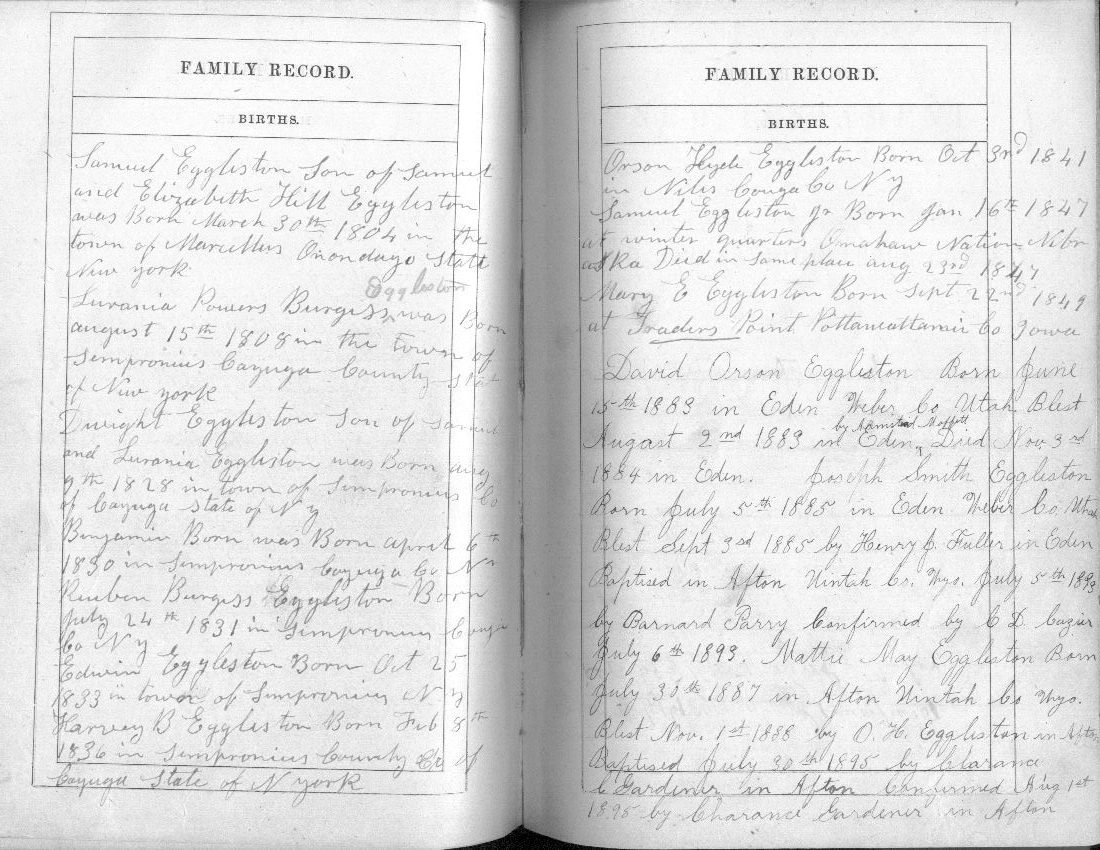 FAMILY RECORD.
BIRTHS.
Samuel Eggleston Son of Samuel
and Elizabeth Hill Eggleston
was Born March 30th 1804 in the
town of Marcellus Onondago State
New york
Eggleston
Lurania Powers Burgess was Born
august 15th 1808 in the town of
Sempronius Cayuga County Stat
of New york
Dwight Eggleston Son of Samuel
and Lurania Eggleston was Born aug
9th 1828 in town of Sempronius Co
of Cayuga State of N y
Benjamin Born was Born april 6th
1830 in Sempronius Cayuga Co N
Reuben Burgess Eggleston Born
july 24th 1831 in Sempronius Cayuga
Co N y
Edwin Eggleston Born Oct 25
1833 in town of Sempronius N y
Harvey B Eggleston Born Feb 8th
1836 in Sempronius County of
Cayuga State of N york
FAMILY RECORD.
BIRTHS.
Orson Hyde Eggleston Born Oct 3rd 1841
in Niles Couga Co N y
Samuel Eggleston jr Born Jan 16th 1847
at winter quarters Omahaw Nation Nebr
aska Died in Same place aug 23rd 1847
Mary E Eggleston Born Sept 22nd 1849
at Traders Point Pottawattamie Co Iowa
David Orson Eggleston Born June
15th 1883 in Eden Weber Co Utah Blest
by Moffett
August 2nd 1883 in Eden, Died Nov. 3rd
1884 in Eden. Joseph Smith Eggleston
Born July 5th 1885 in Eden Weber Co Utah
Blest Sept 3rd 1885 by Henry J. Fuller in Eden
Baptised in Afton Uintah Co. Wyo. July 5th 1893
by Barnard Parry Confirmed by C D. Cazier
July 6th 1893. Mattie May Eggleston Born
July 30th 1887 in Afton Uintah Co Wyo.
Blest Nov. 1st 1888 by O. H. Eggleston in Afton
Baptised July 30th 1895 by Clarance
C Gardener in Afton Confirmed Aug 1st
1895 by Charance Gardener in Afton